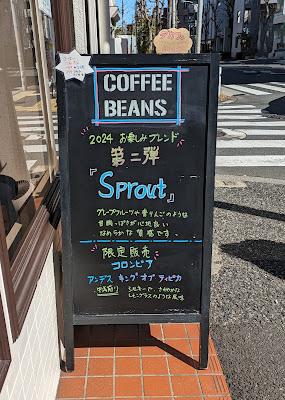 COFFEE
BEANS
2024 お楽しみブレンド
第二弾
『Sprout』
グレープフルーツや青りんごのような
甘酸っぱさが心地良い
なめらかな質感です。
限定販売
コロンビア
アンデス キング オブ ティピカ
中浅煎り
シルキーで、さわやかな
レモングラスのような風味